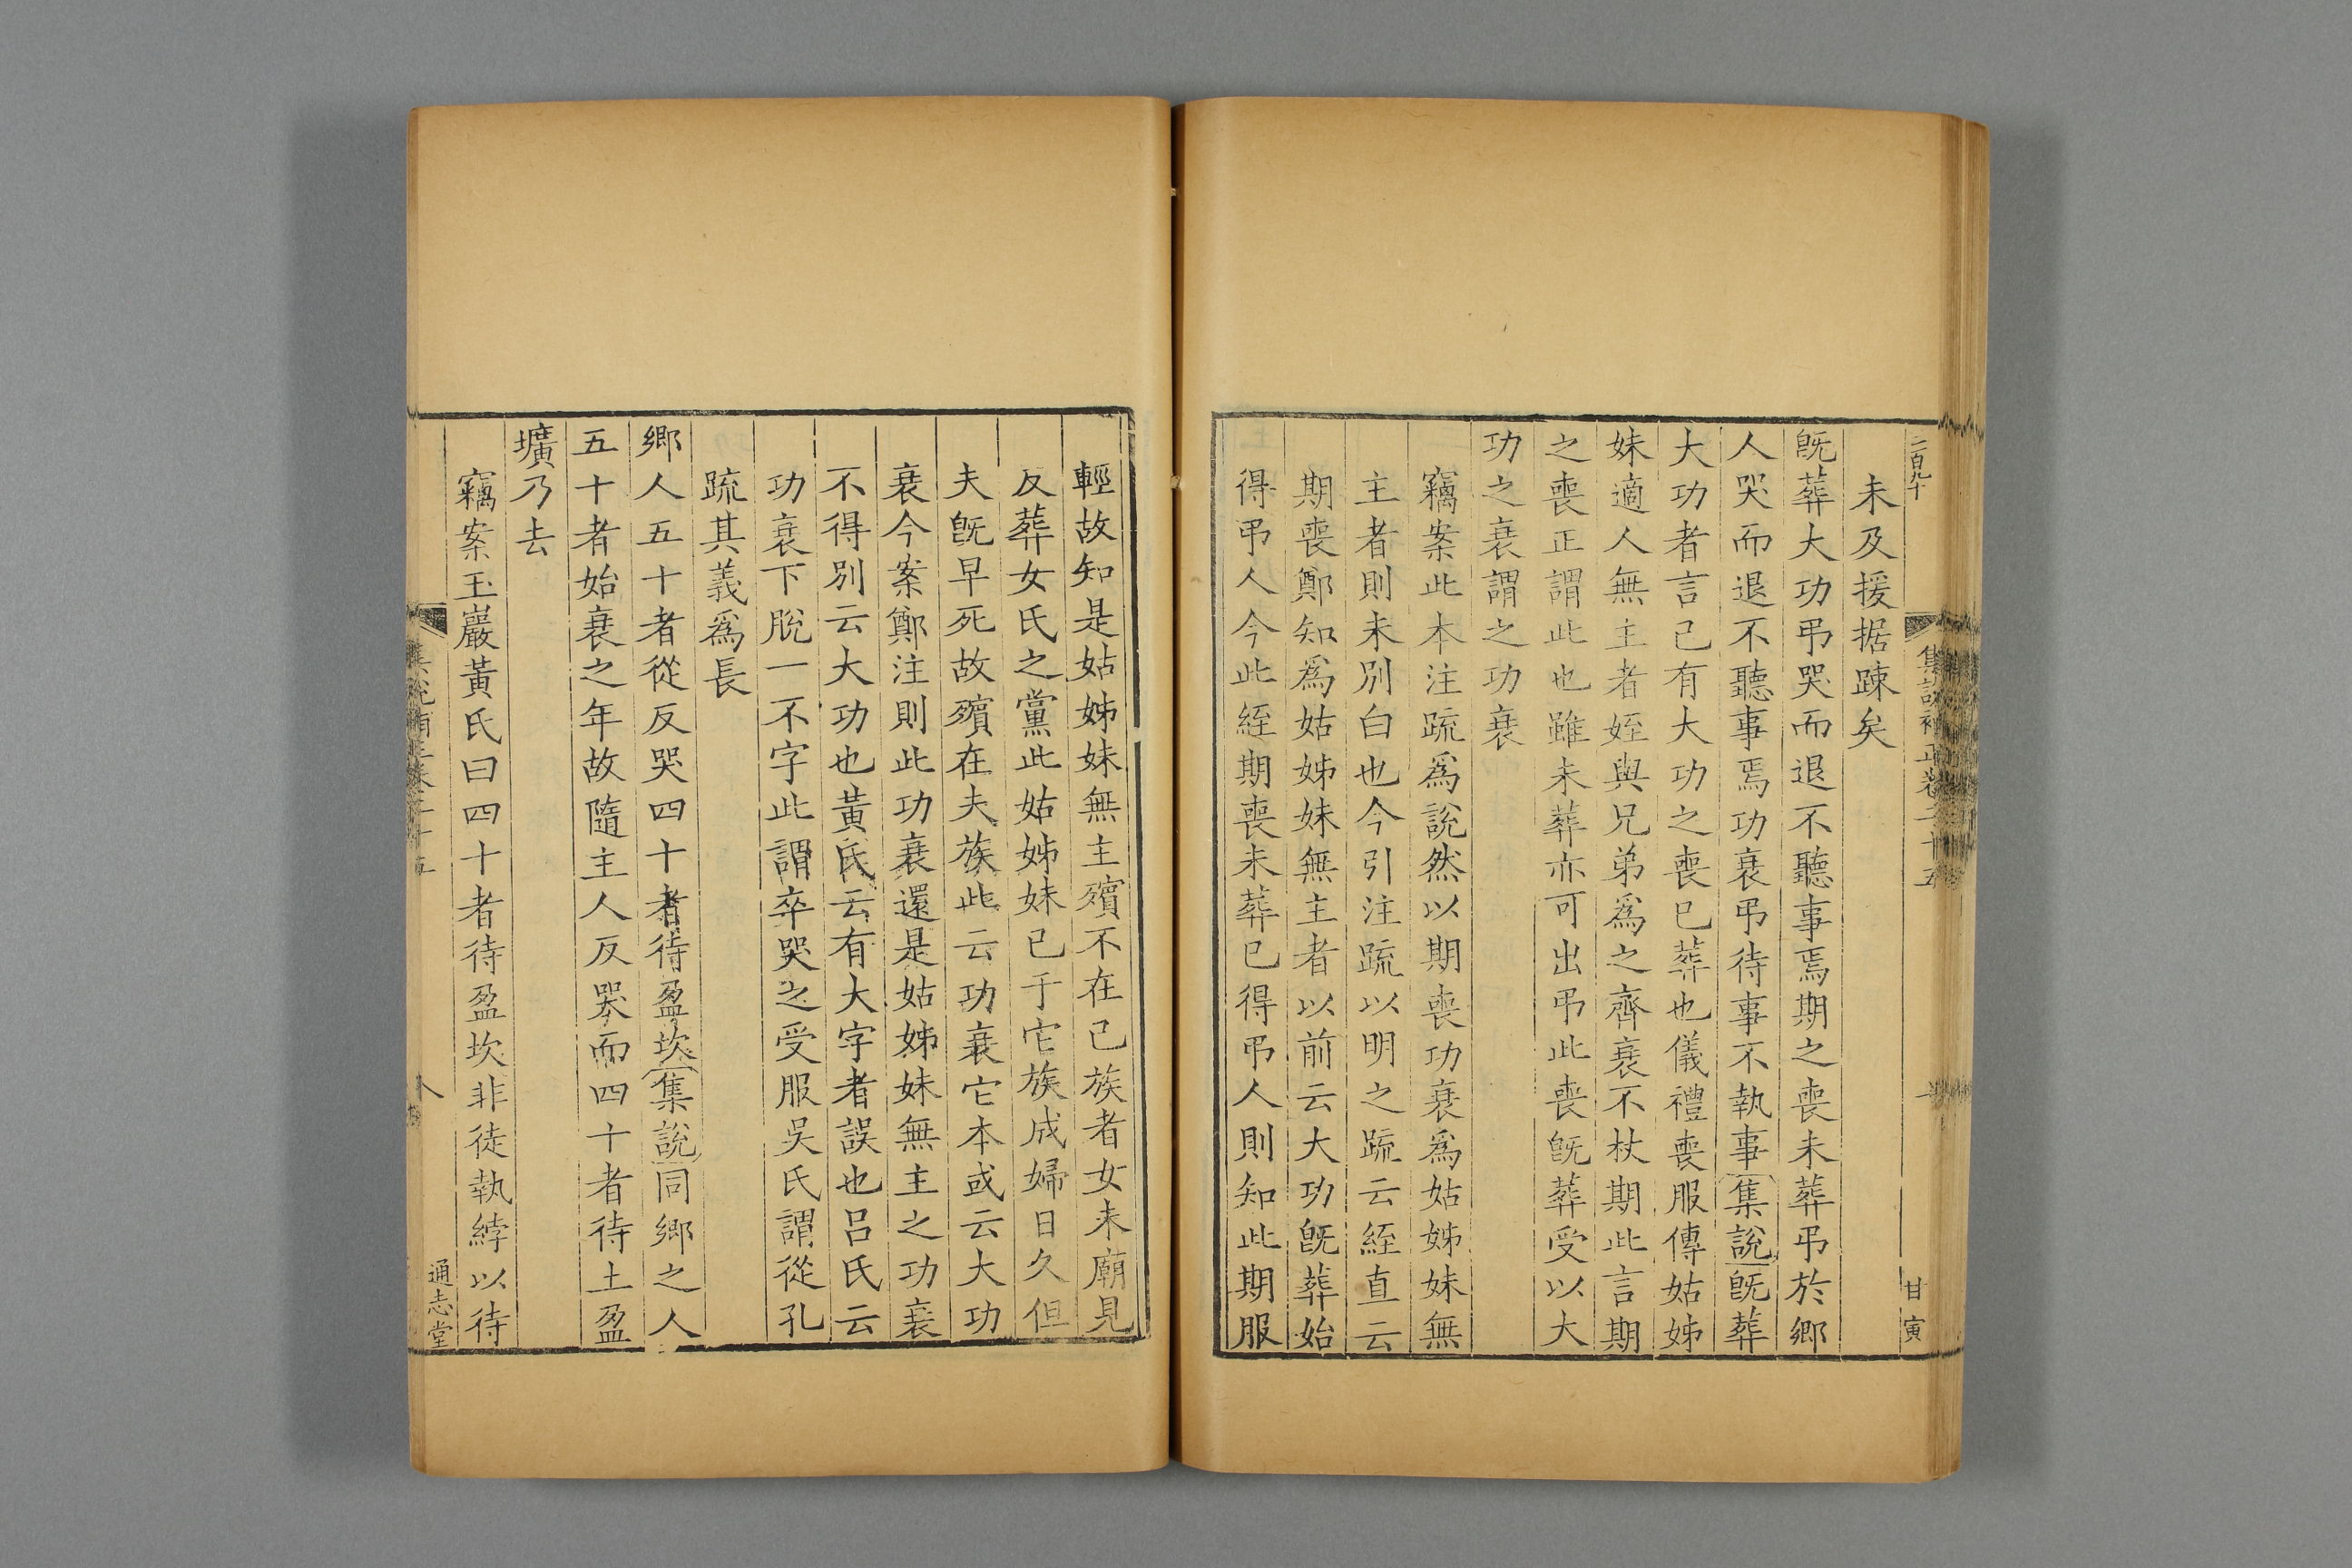 二百九十
集說補正卷二十五
甘寅
未及援据踈矣
旣葬大功弔哭而退不聽事焉期之喪未葬弔於鄉
人哭而退不聽事焉功衰弔待事不執事集說旣葬
大功者言己有大功之喪已葬也儀禮喪服傳姑姊
妹適人無主者姪與兄弟爲之齊衰不杖期此言期
之喪正謂此也雖未葬亦可出弔此喪旣葬受以大
功之衰謂之功衰
竊案此本注疏爲說然以期喪功衰爲姑姊妹無
主者則未別白也今引注疏以明之疏云絰直云
期喪鄭知爲姑姊妹無主者以前云大功旣葬始
得弔人今此絰期喪未葬已得弔人則知此期服
輕故知是姑姊妹無主殯不在己族者女未廟見
反葬女氏之黨此姑姊妹已于它族成婦日久但
夫旣早死故殯在夫族此云功衰它本或云大功
衰今案鄭注則此功衰還是姑姊妹無主之功衰
不得別云大功也黃氏云有大字者誤也呂氏云
功衰下脫一不字此謂卒哭之受服吳氏謂從孔
疏其義爲長
鄉人五十者從反哭四十者待盈坎集說同鄉之人
五十者始衰之年故隨主人反哭而四十者待土盈
壙乃去
竊案玉巖黃氏曰四十者待盈坎非徒執綍以待
八
通志堂